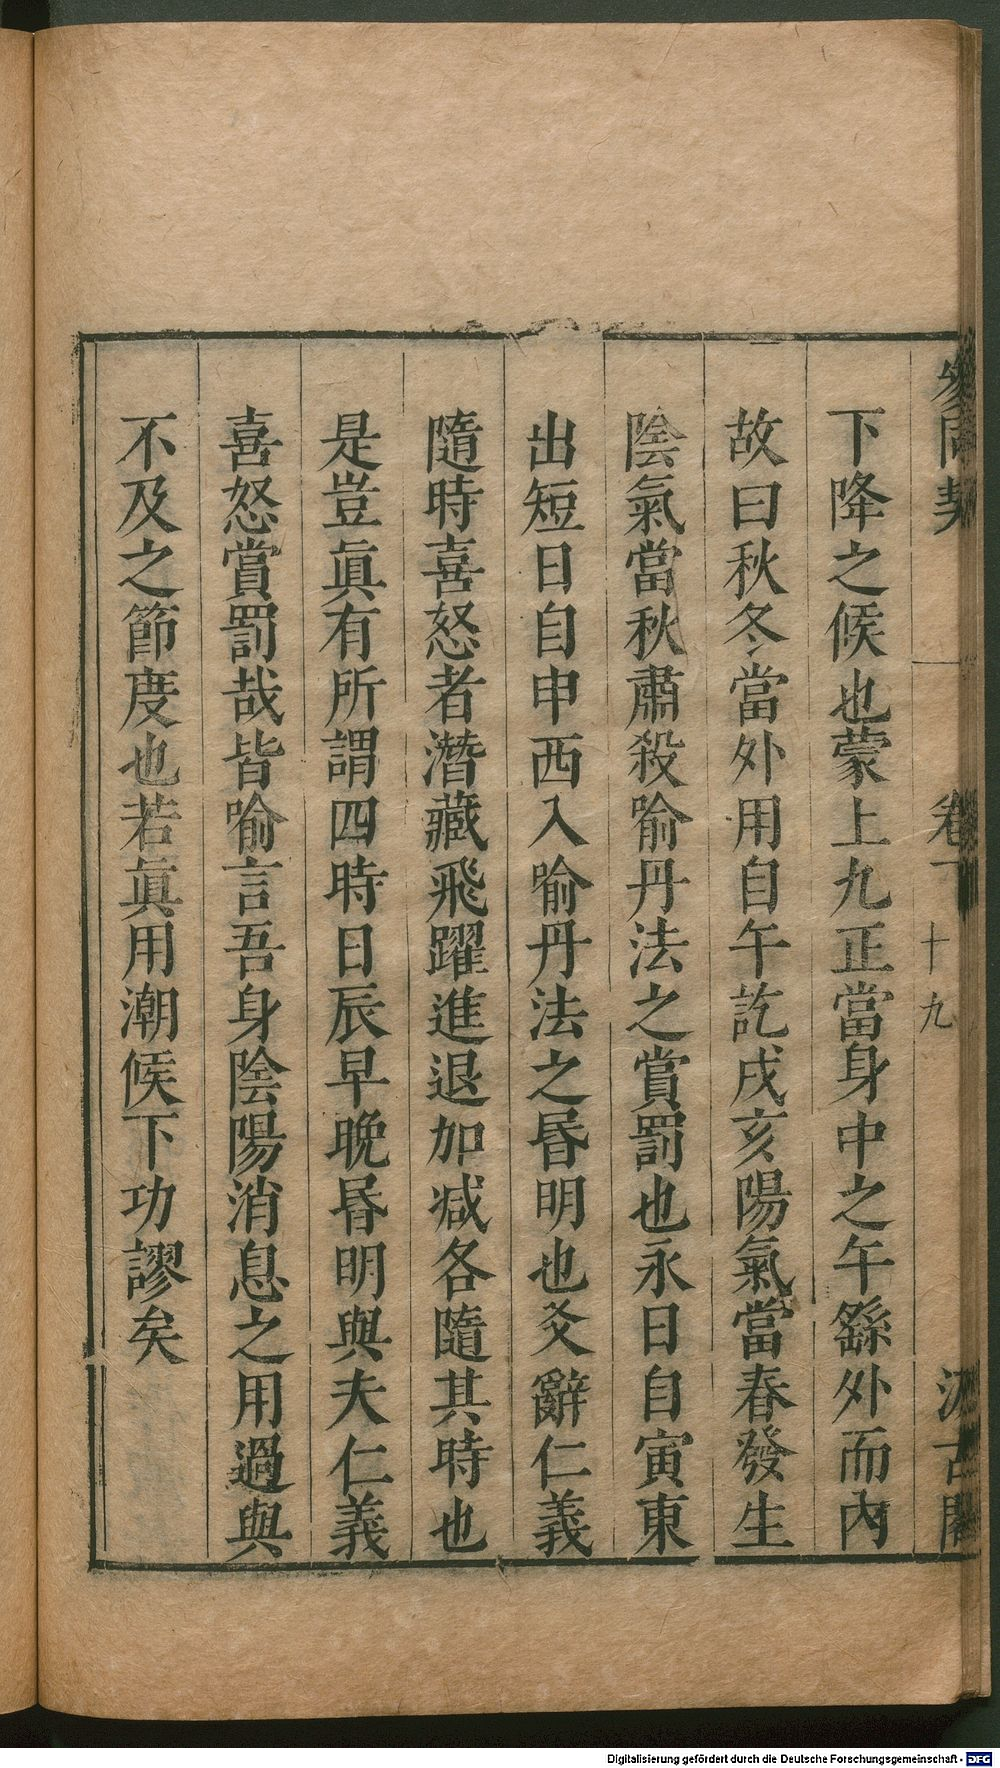 參同契 卷下 十九 汲古閣
下降之候也蒙上九正當身中之午繇外而內
故曰秋冬當外用自午訖戌亥陽氣當春發生
陰氣當秋肅殺喻丹法之賞罰也永日自寅東
出短日自申西入喻丹法之昬明也爻辭仁義
隨時喜怒者潛藏飛躍進退加减各隨其時也
是豈眞有所謂四時日辰早晚昬明與夫仁義
喜怒賞罰哉皆喻言吾身陰陽消息之用過與
不及之節度也若眞用潮候下功謬矣
Digitalisierung gefördert durch die Deutsche Forschungsgemeinschaft - DFG